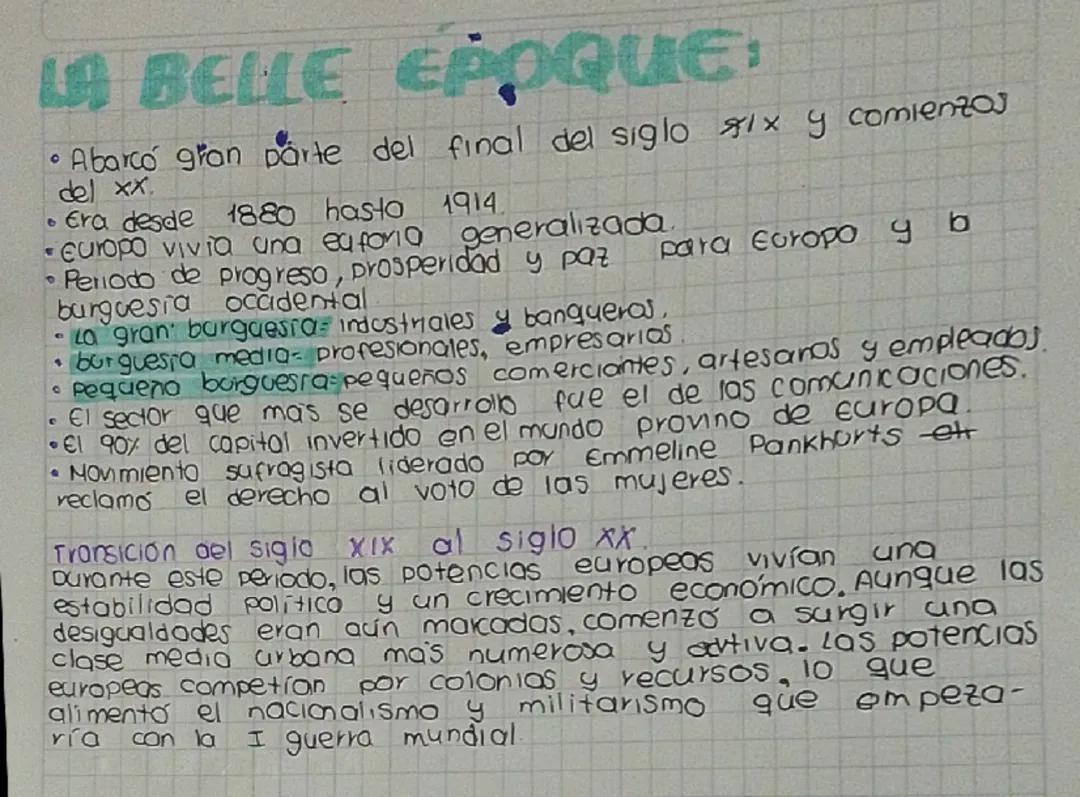 LA BELLE EPOQUE:
• Abarcó gran parte del final del siglo XIX y comienzos
del XX.
• Era desde 1880 hasta 1914.
• Europa vivía una euforia generalizada.
• Periodo de progreso, prosperidad y paz para Europa y la
burguesía occidental.
• La gran burguesía= industriales y banqueros.
• burguesía media= profesionales, empresarios.
• Pequeña burguesía= pequeños comerciantes, artesanos y empleados.
• El sector que más se desarrollo fue el de las comunicaciones.
• El 90% del capital invertido en el mundo provino de Europa.
• Movimiento sufragista liderado por Emmeline Pankhurts
reclamó el derecho al voto de las mujeres.
Transición del siglo XIX al siglo XX.
Durante este periodo, las potencias europeas vivían una
estabilidad política y un crecimiento económico. Aunque las
desigualdades eran aún marcadas, comenzó a surgir una
clase media urbana más numerosa y activa. Las potencias
europeas competían por colonias y recursos, lo que
alimentó el nacionalismo y militarismo que empeza-
ría con la I guerra mundial.